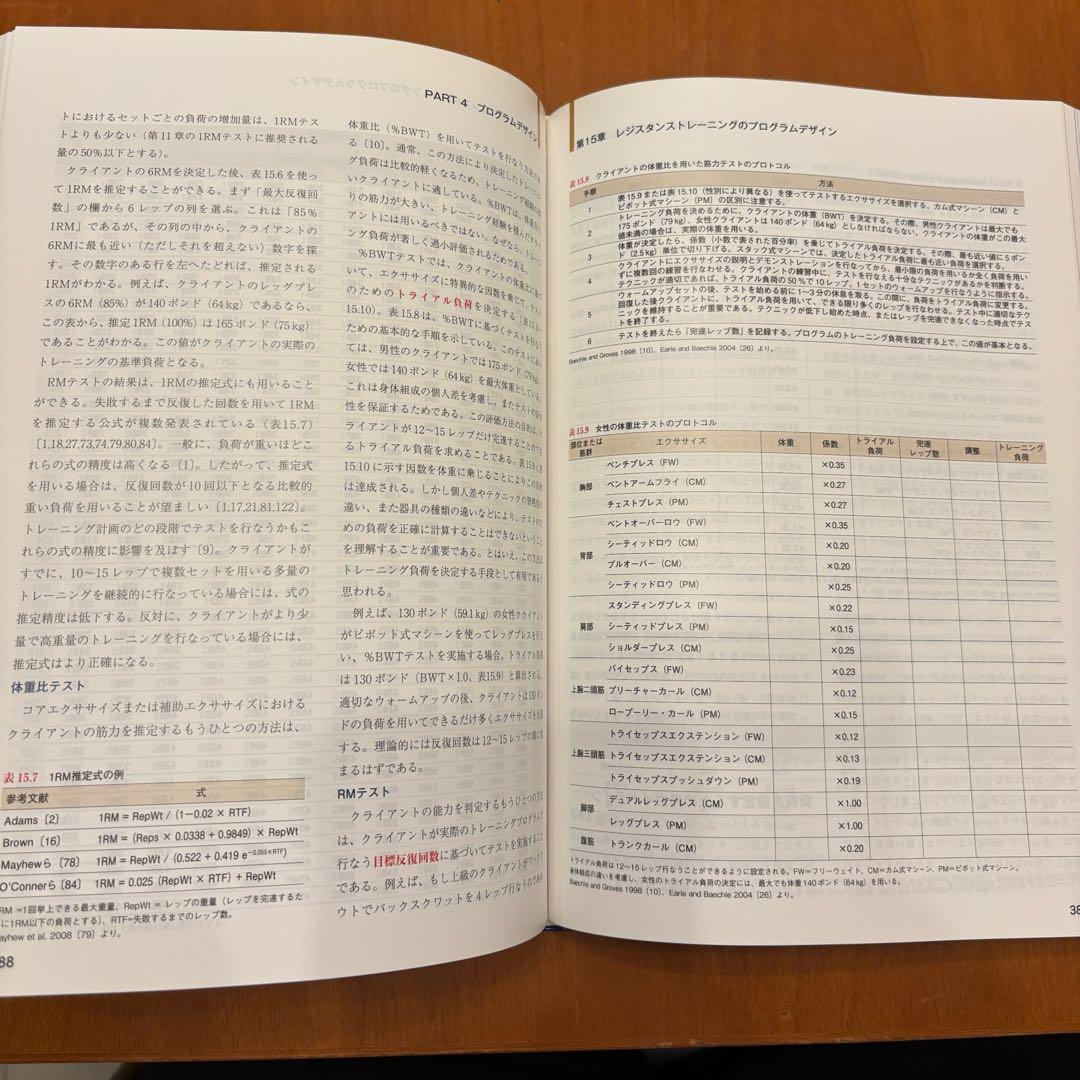 PART 4 プログラムデザイン
トにおけるセットごとの負荷の増加量は、1RMテス
トよりも少ない（第11章の1RMテストに推奨される
量の50%以下とする）。
クライアントの6RMを決定した後、表15.6を使っ
て1RMを推定することができる。まず「最大反復回
数」の欄から6レップの列を選ぶ。これは「85%
1RM」であるが、その列の中から、クライアントの
6RMに最も近い（ただしそれを超えない）数字を探
す。その数字のある行を左へたどれば、推定される
1RMがわかる。例えば、クライアントのレッグプレ
スの6RM（85%）が140ポンド（64kg）であるなら、
この表から、推定1RM（100%）は165ポンド（75kg）
であることがわかる。この値がクライアントの実際の
トレーニングの基準負荷となる。
RMテストの結果は、1RMの推定式にも用いること
ができる。失敗するまで反復した回数を用いて1RM
を推定する公式が複数発表されている（表15.7）
〔1,18,27,73,74,79,80,84〕。一般に、負荷が重いほどこ
れらの式の精度は高くなる〔1〕。したがって、推定式
を用いる場合は、反復回数が10回以下となる比較的
重い負荷を用いることが望ましい〔1,17,21,81,122〕。
トレーニング計画のどの段階でテストを行なうかもこ
れらの式の精度に影響を及ぼす〔9〕。クライアントが
すでに、10〜15レップで複数セットを用いる多量の
トレーニングを継続的に行なっている場合には、式の
推定精度は低下する。反対に、クライアントがより少
量で高重量のトレーニングを行なっている場合には、
推定式はより正確になる。
体重比テスト
コアエクササイズまたは補助エクササイズにおける
クライアントの筋力を推定するもうひとつの方法は、
表15.7 1RM推定式の例
参考文献 式
Adams〔2〕 1RM = RepWt / (1-0.02 × RTF)
Brown〔16〕 1RM = (Reps × 0.0338 + 0.9849) × RepWt
Mayhewら〔78〕 1RM = RepWt / (0.522 + 0.419 e-0.055×RTF)
O'Connerら〔84〕 1RM = 0.025 (RepWt × RTF) + RepWt
RM =1回挙上できる最大重量、RepWt = レップの重量（レップを完遂するた
に1RM以下の負荷とする）、RTF=失敗するまでのレップ数。
ayhew et al. 2008〔79〕より。
88
体重比（%BWT）を用いてテストを行なう方法であ
る〔10〕。通常、この方法により決定したトレーニン
グ負荷は比較的軽くなるため、トレーニング経験のな
いクライアントに適している。%BWTは、体重あた
りの筋力が大きい、トレーニング経験を積んだクライ
アントには用いるべきではない。なぜなら、トレーニ
ング負荷が著しく過小評価されるためである。
%BWTテストでは、クライアントの体重に基づ
いて、エクササイズに特異的な因数を乗じて、テスト
のためのトライアル負荷を決定する（表15.9、
15.10）。表15.8は、%BWTに基づくテストを行なう
ための基本的な手順を示している。このテストにおい
ては、男性のクライアントでは175ポンド（79kg）、
女性では140ポンド（64kg）を最大体重としている。
これは身体組成の個人差を考慮し、またテストの安全
性を保証するためである。この評価方法の目的は、ク
ライアントが12〜15レップだけ完遂することのでき
るトライアル負荷を求めることである。表15.9と表
15.10に示す因数を体重に乗じることによりこの目的
は達成される。しかし個人差やテクニックの習熟度の
違い、また器具の種類の違いなどにより、テストのた
めの負荷を正確に計算することはできないということ
を理解することが重要である。とはいえ、この方法は
トレーニング負荷を決定する手段として有用であると
思われる。
例えば、130ポンド（59.1kg）の女性クライアント
がピボット式マシーンを使ってレッグプレスを行な
い、%BWTテストを実施する場合、トライアル負荷
は130ポンド（BWT×1.0、表15.9）と算出される。
適切なウォームアップの後、クライアントは130ポン
ドの負荷を用いてできるだけ多くエクササイズを反復
する。理論的には反復回数は12〜15レップの間に収
まるはずである。
RMテスト
クライアントの能力を判定するもうひとつの方法
は、クライアントが実際のトレーニングプログラムで
行なう目標反復回数に基づいてテストを実施すること
である。例えば、もし上級のクライアントがワークア
ウトでバックスクワットを4レップ行なうのであ
第15章 レジスタンストレーニングのプログラムデザイン
表15.8 クライアントの体重比を用いた筋力テストのプロトコル
手順 方法
1 表15.9または表15.10（性別により異なる）を使ってテストするエクササイズを選択する。カム式マシーン（CM）と
ピボット式マシーン（PM）の区別に注意する。
2 トレーニング負荷を決めるために、クライアントの体重（BWT）を決定する。その際、男性クライアントは最大でも
175ポンド（79kg）、女性クライアントは140ポンド（64kg）としなければならない。クライアントの体重がこの最大
値未満の場合は、実際の体重を用いる。
3 体重が決定したら、係数（小数で表された百分率）を乗じてトライアル負荷を決定する。その際、最も近い値に5ポン
ド（2.5kg）単位で切り下げる。スタック式マシーンでは、決定したトライアル負荷に最も近い負荷を選択する。
4 クライアントにエクササイズの説明とデモンストレーションを行なってから、最小限の負荷を用いるか全く負荷を用い
ずに複数回の練習を行なわせる。クライアントの練習中に、テストを行なえる十分なテクニックがあるかを判断する。
テクニックが適切であれば、トライアル負荷の50%で10レップ、1セットのウォームアップを行なうように指示する。
5 ウォームアップセットの後、テストを始める前に1〜3分の休息を取る。この間に、負荷をトライアル負荷に変更する。
回復した後クライアントに、トライアル負荷を用いて、できる限り多くのレップを行なわせる。テスト中に適切なテク
ニックを維持することが重要である。テクニックが低下し始めた時点、またはレップを完遂できなくなった時点でテス
トを終了する。
6 テストを終えたら「完遂レップ数」を記録する。プログラムのトレーニング負荷を設定する上で、この値が基本となる。
Baechle and Groves 1998〔10〕、Earle and Baechle 2004〔26〕より。
表15.9 女性の体重比テストのプロトコル
部位または筋群 エクササイズ 体重 係数 トライアル負荷 完遂レップ数 調整 トレーニング負荷
胸部 ベンチプレス（FW） ×0.35
ベントアームフライ（CM） ×0.27
チェストプレス（PM） ×0.27
背部 ベントオーバーロウ（FW） ×0.35
シーティッドロウ（CM） ×0.20
プルオーバー（CM） ×0.20
シーティッドロウ（PM） ×0.25
肩部 スタンディングプレス（FW） ×0.22
シーティッドプレス（PM） ×0.15
ショルダープレス（CM） ×0.25
上腕二頭筋 バイセップス（FW） ×0.23
プリーチャーカール（CM） ×0.12
ロープーリー・カール（PM） ×0.15
上腕三頭筋 トライセップスエクステンション（FW） ×0.12
トライセップスエクステンション（CM） ×0.13
トライセップスプッシュダウン（PM） ×0.19
脚部 デュアルレッグプレス（CM） ×1.00
レッグプレス（PM） ×1.00
腹筋 トランクカール（CM） ×0.20
トライアル負荷は12〜15レップ行なうことができるように設定される。FW=フリーウェイト、CM=カム式マシーン、PM=ピボット式マシーン。
身体組成の違いを考慮し、女性のトライアル負荷の決定には、最大でも体重140ポンド（64kg）を用いる。
Baechle and Groves 1998〔10〕、Earle and Baechle 2004〔26〕より。
38